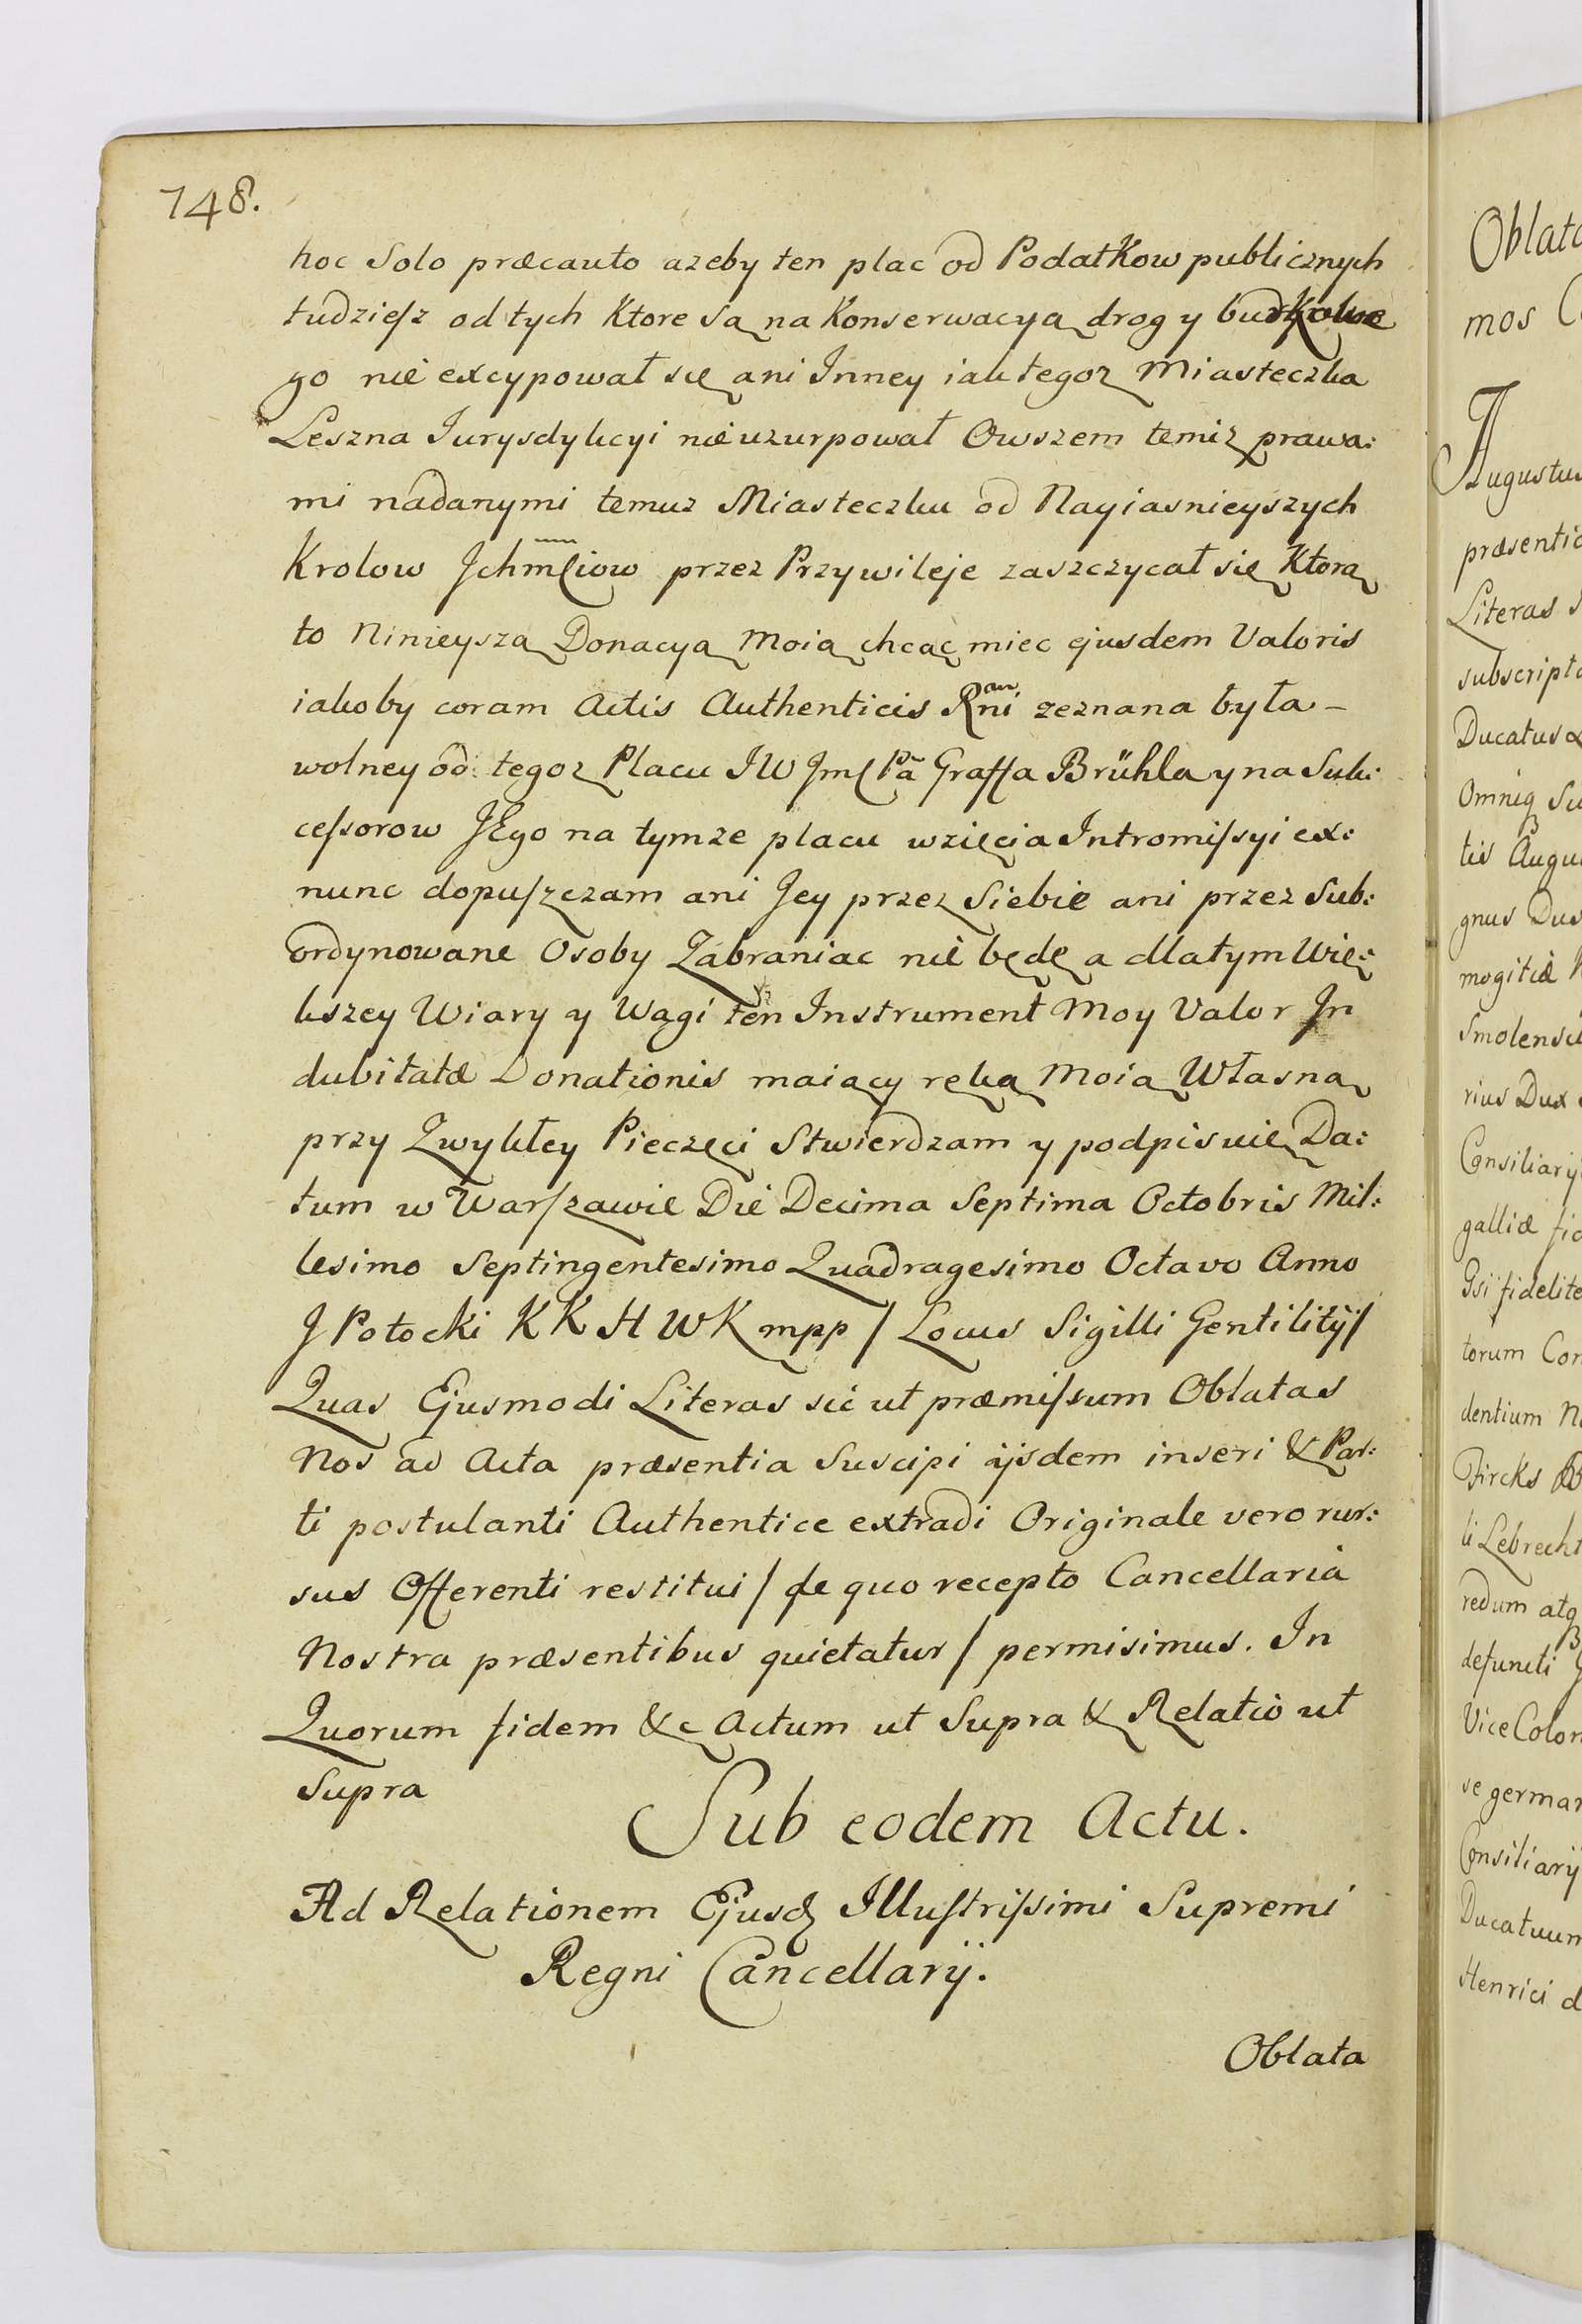 748.
hoc Solo præcauto azeby ten plac od Podatkow publicznych
tudzieſz od tych Ktore są na Konserwacyą drog y budkowe
go nie excypował się ani Inney iak tegoz Miasteczka
Leszna Iurysdykcyi nie uzurpował Owszem temiz prawa:
mi nadanymi temuz Miasteczku od Nayiasnieyszych
Krolow Jchmſciow przez Przywileje zaszczycał się Ktorą
to Ninieyszą Donacyą Moią chcąc miec ejusdem Valoris
iakoby coram Actis Authenticis Rni zeznana była –
wolney od tegoz Placu IW Jmſ Pa Graffa Brühla y na Suk:
ceſsorow JEgo na tymze placu wzięcia Intromiſsyi ex:
nunc dopuſzczam ani Jey przez Siebie ani przez Sub:
ordynowane Osoby Zabraniac nie będę a dla tym Wię:
kszey Wiary y Wagi ten Instrument Moy Valor In
dubitatæ Donationis maiący ręką Moią Własną
przy Zwykłey Pieczęci Stwierdzam y podpisuię Da:
tum w Warſzawie Die Decima Septima Octobris Mil:
lesimo Septingentesimo Quadragesimo Octavo Anno
J Potocki K K H W K mpp / Locus Sigilli Gentilitÿ /
Quas Ejusmodi Literas sic ut præmiſsum Oblatas
Nos ad Acta præsentia Suscipi ijsdem inseri & Par:
ti postulanti Authentice extradi Originale vero rur:
sus Offerenti restitui / de quo recepto Cancellaria
Nostra præsentibus quietatur / permisimus. In
Quorum fidem &c Actum ut Supra & Relatio ut
Supra
Sub eodem Actu.
Ad Relationem Ejusd Illuſtriſsimi Supremi
Regni Cancellarÿ.
Oblata
mos
Augustus
Literas
subscript
Ducatus
Omniq Su
tis Augu
gnus Dus
mogitiæ
Smolensci
rius Dux
Consiliarij
galliæ fid
Gsi fidelite
torum Con
dentium N
Fircks
li Lebrecht
redum atq
defuncti
Vice Colon
se german
Consiliarij
Ducatuum
Henrici d